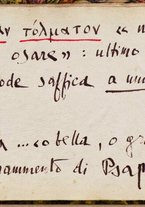 ν τόλματον « u
osare» : ultimo
ode saffica a un
a ... o bella, o g
rammento di Psap